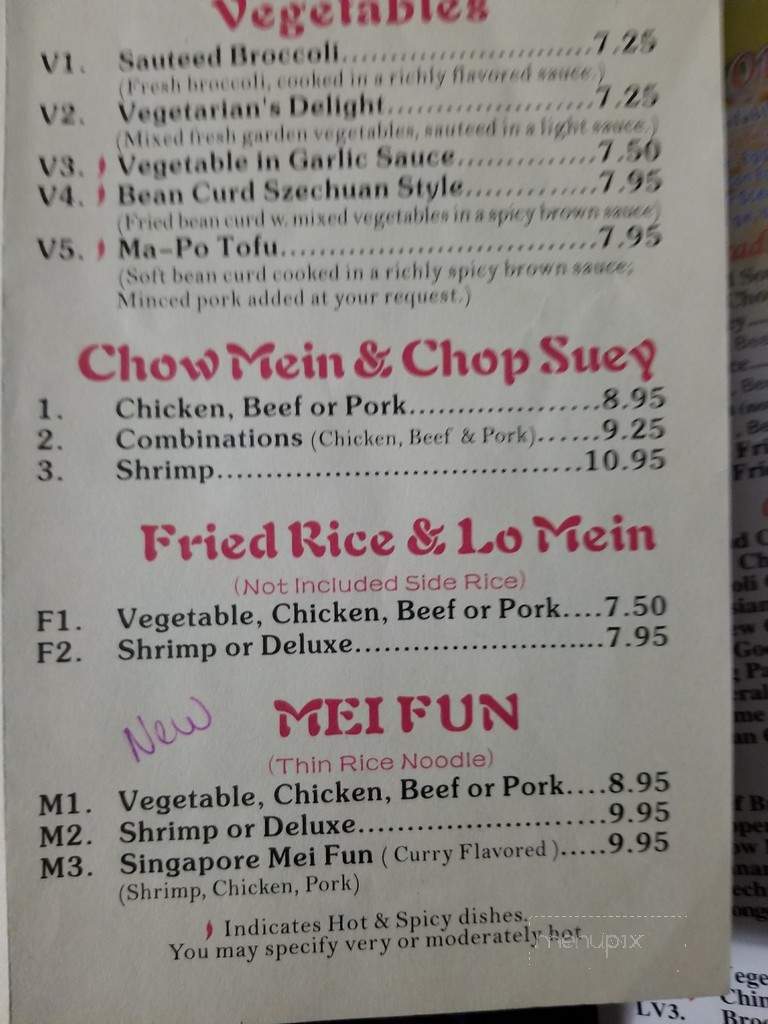 Vegetables
V1. Sauteed Broccoli..............................7.25
(Fresh broccoli, cooked in a richly flavored sauce.)
V2. Vegetarian's Delight.........................7.25
(Mixed fresh garden vegetables, sauteed in a light sauce.)
V3. Vegetable in Garlic Sauce..............7.50
V4. Bean Curd Szechuan Style.............7.95
(Fried bean curd w. mixed vegetables in a spicy brown sauce)
V5. Ma-Po Tofu.................................7.95
(Soft bean curd cooked in a richly spicy brown sauce;
Minced pork added at your request.)
Chow Mein & Chop Suey
1. Chicken, Beef or Pork...................8.95
2. Combinations (Chicken, Beef & Pork)......9.25
3. Shrimp.....................................10.95
Fried Rice & Lo Mein
(Not Included Side Rice)
F1. Vegetable, Chicken, Beef or Pork....7.50
F2. Shrimp or Deluxe.........................7.95
New
MEI FUN
(Thin Rice Noodle)
M1. Vegetable, Chicken, Beef or Pork....8.95
M2. Shrimp or Deluxe.........................9.95
M3. Singapore Mei Fun ( Curry Flavored ).....9.95
(Shrimp, Chicken, Pork)
Indicates Hot & Spicy dishes.
You may specify very or moderately hot
menupix
LV3.